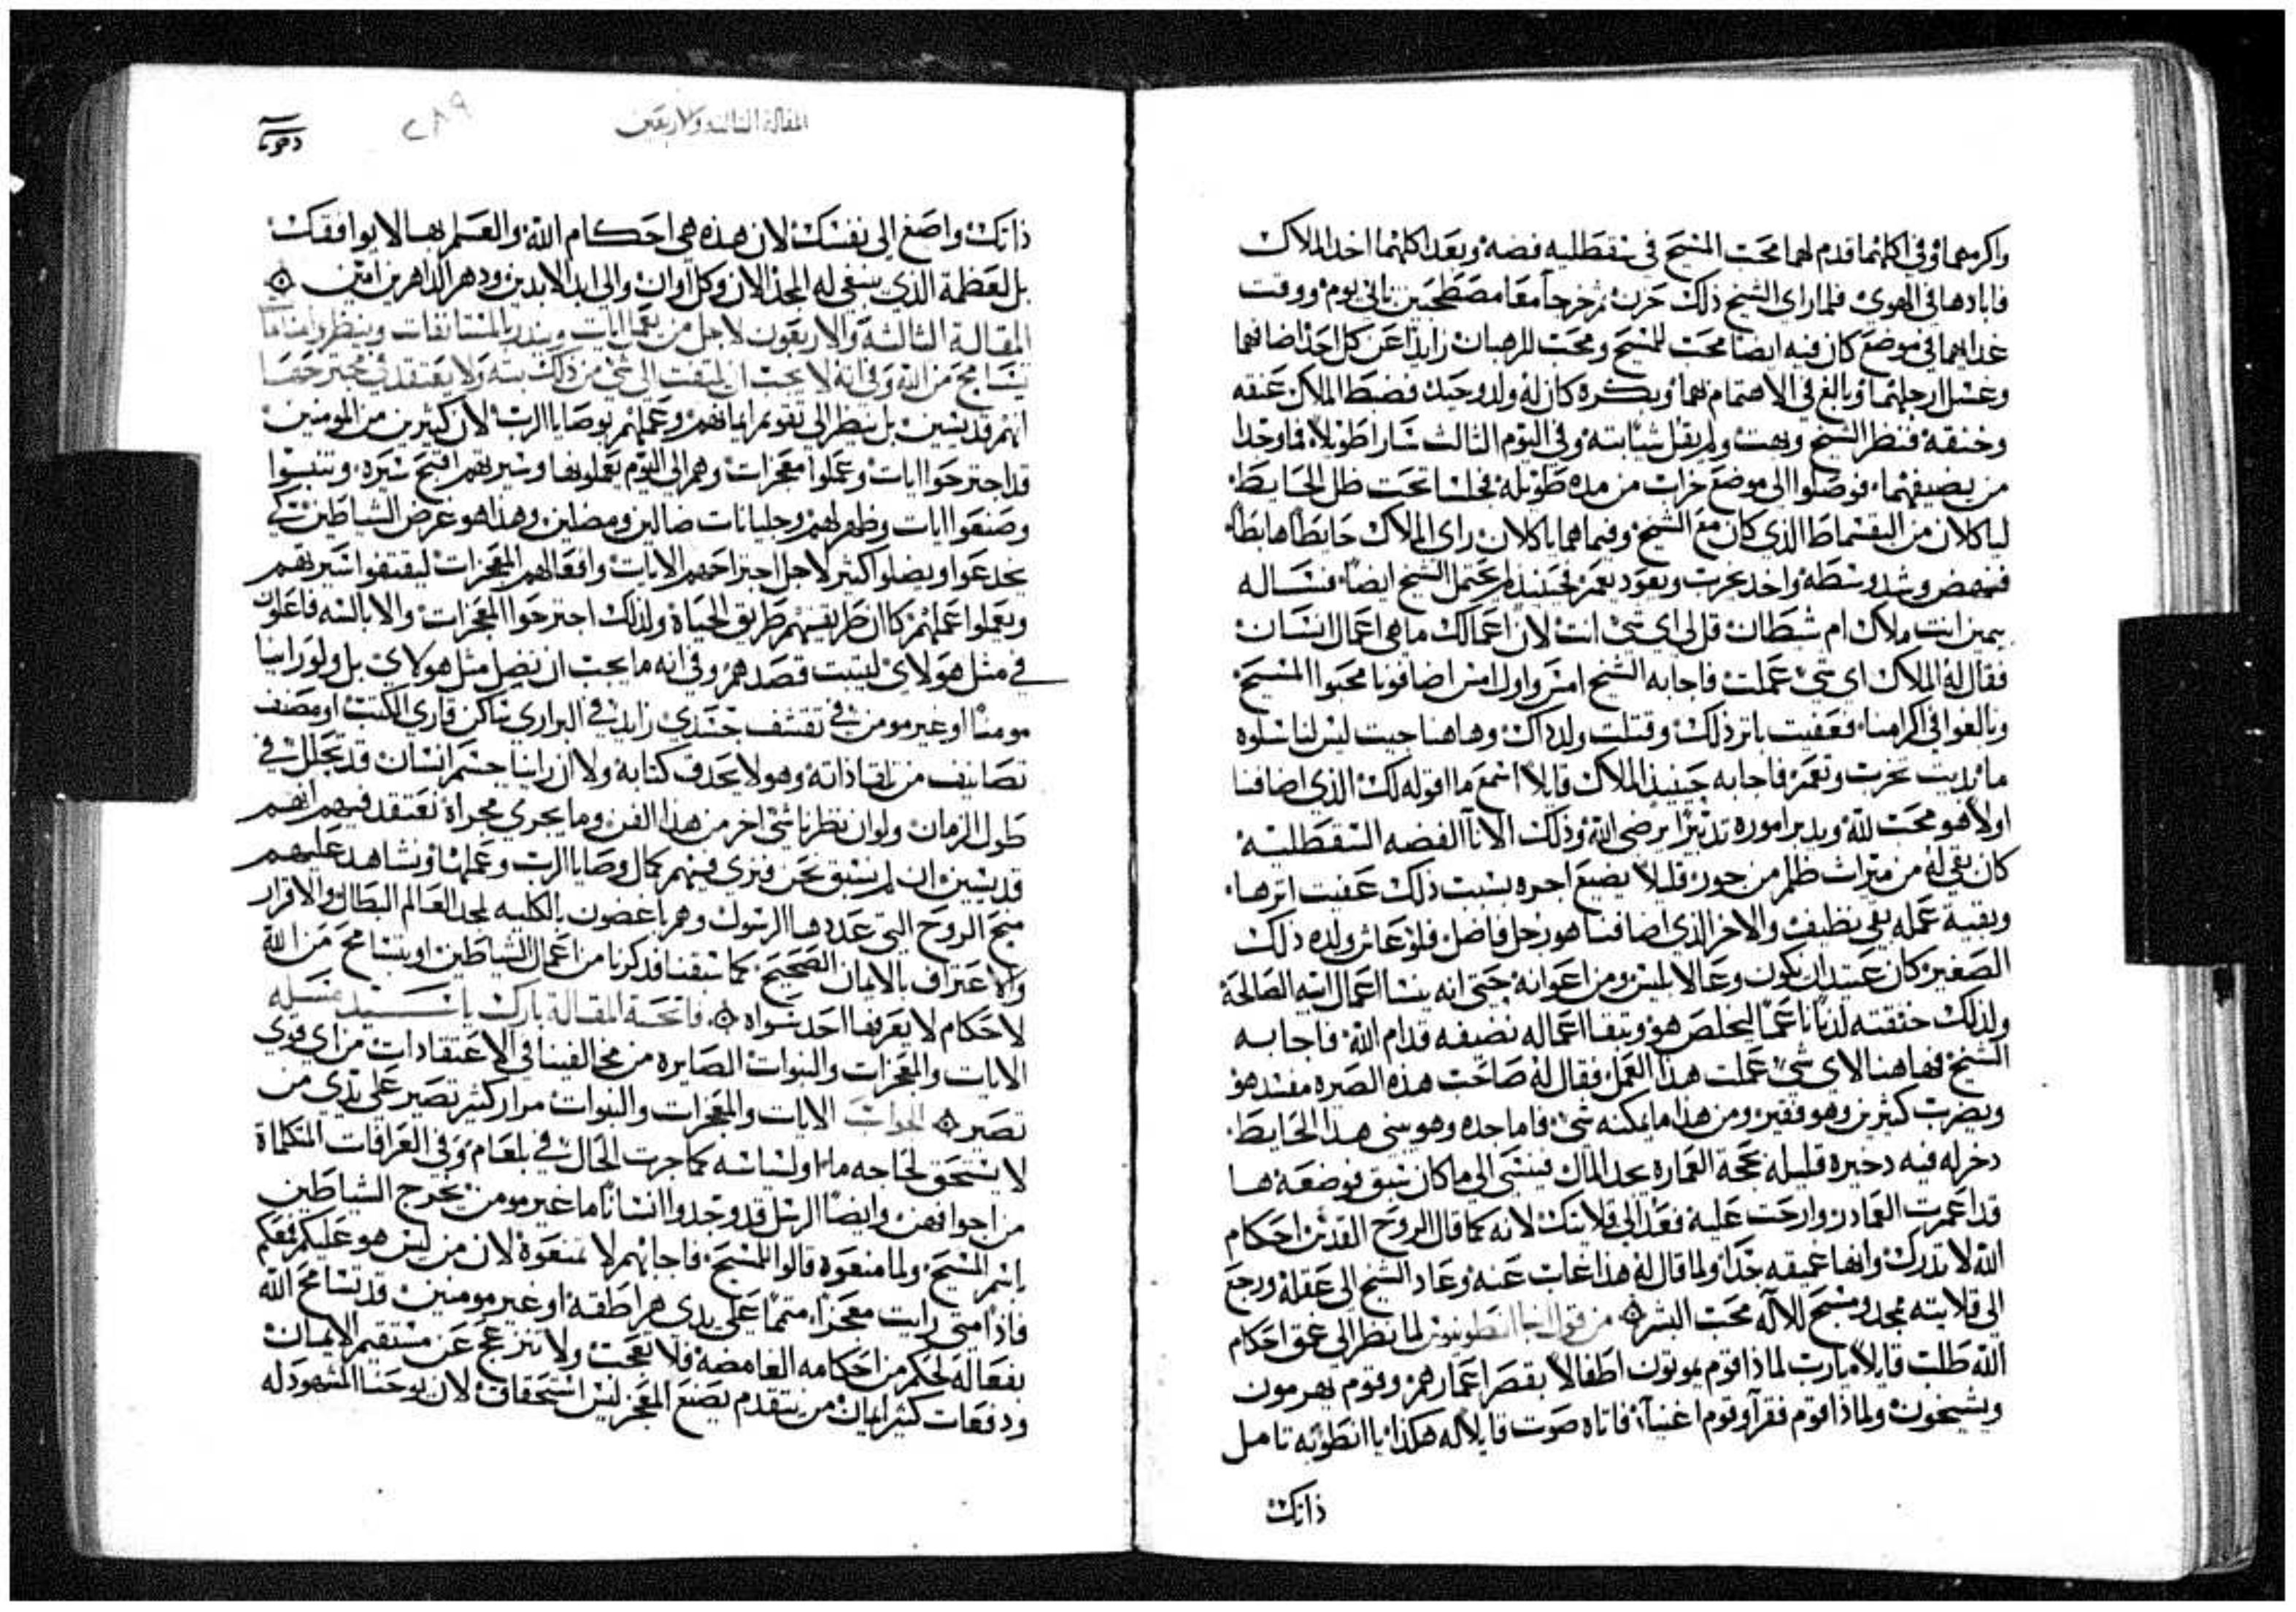 واكرمهما وفي اكلهما قدم لهما محب المسيح في سقطليه فضه وبعد اكلهما اخد الملاك
فابادها في الهوي فلما راى الشيخ ذلك حزن ثم خرجا معا مصطحبين ثاني يوم ووقت
غداهما في موضع كان فيه ايضا محب للمسيح ومحب للرهبان زايدا عن كل احد اضافهما
وغسل ارجلهما وبالغ في الاهتمام بهما وبكره كان له ولد وحيد فضبط الملاك عنقه
وخنقه فنظر الشيخ وبهت ولم يقل شيا بته وفي اليوم الثالث سارا طويلا فما وجدا
من يضيفهما فوصلوا الى موضع خراب من مده طويله فجلسا تحت ظل الحايط
لياكلان من البقسماط الذي كان مع الشيخ وفيما هما ياكلان راى الملاك حايطا هابطا
فنهض وشد وسطه واخد يخرب ويعود يعمر فحينيد لم يحتمل الشيخ ايضا فساله
بيمين انت ملاك ام شيطان قل لي اي شي انت لان اعمالك ما هي اعمال انسان
فقال له الملاك اي شي عملت فاجابه الشيخ امس واول امس اضافونا محبوا المسيح
وبالغوا في اكرامنا فعفيت باثر ذلك وقتلت ولد داك وهاهنا جيت ليس لنا سلوه
ما بديت تخرب وتعمر فاجابه حينيد الملاك قايلا اسمع ما اقوله لك الذي اضافنا
اولا هو محب لله ويدبر اموره تدبيرا يرضي الله وذلك الانا الفضه السقطليه
كان بقي له من ميراث ظلم من جور قليلا يضيع اجره بسبب ذلك عفيت اثرها
وبقية عمله بقي نظيف والاخر الذي اضافنا هو رجل فاضل فلو عاش ولده ذلك
الصغير كان عتيد ان يكون وعا لابليس ومن اعوانه حتى انه ينسا اعمال ابيه الصالحة
ولذلك خنقته لدنانا عما ليخلص هو وتبقا اعماله نضيفه قدام الله فاجابه
الشيخ فهاهنا لاي شي عملت هذا العمل فقال له صاحب هذه الصيره مفسد هو
ويضرب كثيرين وهو فقير ومن هذا ما يمكنه شي فاما جده وهو يبني هذا الحايط
دخر له فيه دخيره قليله بحجة العماره يجد المال فينشي الى ما كان سبق فوضعه ها
قد اعمرت العمادر وارحت عليه فعد الى قلايتك لانه كما قال الروح القدس احكام
الله لا تدرك وانها عميقه جدا ولما قال له هذا غاب عنه وعاد الشيخ الى عقله ورجع
الى قلايته مجد ومسبح للاله محب البشر من قول انبا انطونيوس لما نظر الى عمق احكام
الله طلب قايلا يارب لماذا قوم يموتون اطفالا بقصر اعمارهم وقوم يهرمون
ويشيخون ولماذا قوم فقرآ وقوم اغنيآ فاتاه صوت قايلا له هكذا يا انطونيه تامل
ذاتك
المقالة الثالثه والاربعين
٢٨٩
ذاتك واصغ الى نفسك لان هذه هي احكام الله والعلم بها لا يوافقك
بل لعظمة الذي ينبغي له المجد الان وكل اوان والى ابد الابدين ودهر الداهرين امين
المقالة الثالثة والاربعون لاجل من يعمل ايات ويندر بالمستانفات وينظر وامناما
بتسامح من الله وفي انه لا يجب ان يلتفت الى شي من ذلك بته ولا يعتقد في مجترحها
انهم قديسين بل ينظر الى تقويم ايمانهم وعملهم بوصايا الرب لان كثيرين من المومنين
قد اجترحوا ايات وعملوا معجزات وهم الى اليوم يعملونها وسيرتهم اقبح سيره وتنبوا
وصنعوا ايات وظهر لهم وجليانات ضالين ومضلين وهذا هو غرض الشياطين كي
يخدعوا ويضلوا كثير لاجل اجتراحهم الايات وافعالهم المعجزات ليقتفوا سيرتهم
ويعملوا عملهم كان طريقهم طريق الحياة ولذلك اجترحوا المعجزات والابالسه فاعلون
في مثل هولاي ليثبت قصدهم وفي انه ما يجب ان نضل مثل هولاي بل ولو راينا
مومنا او غير مومن في تقشف جسدي زايد في البراري ساكن قاري الكتب او مصنف
تصانيف من تلقا ذاته وهو لا يحدق كتابة ولا ان راينا جسم انسان قد تجلل في
طول الزمان ولو ان نظرنا شي اخر من هذا الفن وما يجري مجراه نعتقد فيهم انهم
قديسين ان لم نسبق نحن فنري فيهم كمال وصايا الرب وعملها ونشاهد عليهم
منح الروح التي عددها الرسول وهم باغضون بالكليه لمجد العالم البطال والاقرار
والاعتراف بالايمان الصحيح كما سبقنا فدكرنا من اعمال الشياطين او بتسامح من الله
لاحكام لا يعرفها احد سواه فاتحة المقالة بارك يا سيد مسله
الايات والمعجزات والنبوات الصايره من مخالفينا في الاعتقادات من اي قوي
تصير الجواب الايات والمعجزات والنبوات مرار كثير تصير على يدي من
لا يستحق لحاجه ما او لسياسه كما جرت الحال في بلعام وفي العرافات المتكلماة
من اجوافهن وايضا الرسل قد وجدوا انسانا ما غير مومن يخرج الشياطين
باسم المسيح ولما منعوه قالوا للمسيح فاجابهم لا تمنعوه لان من ليس هو عليكم فمعكم
فاذا متى رايت معجزا متمما على يدي هراطقه او غير مومنين قد تسامح الله
بفعاله لحكم من احكامه الغامضه فلا تعجب ولا تنزعج عن مستقيم الايمان
ودفعات كثير ايمان من يتقدم يصنع المعجز ليس استحقاق لان يوحنا المشهود له